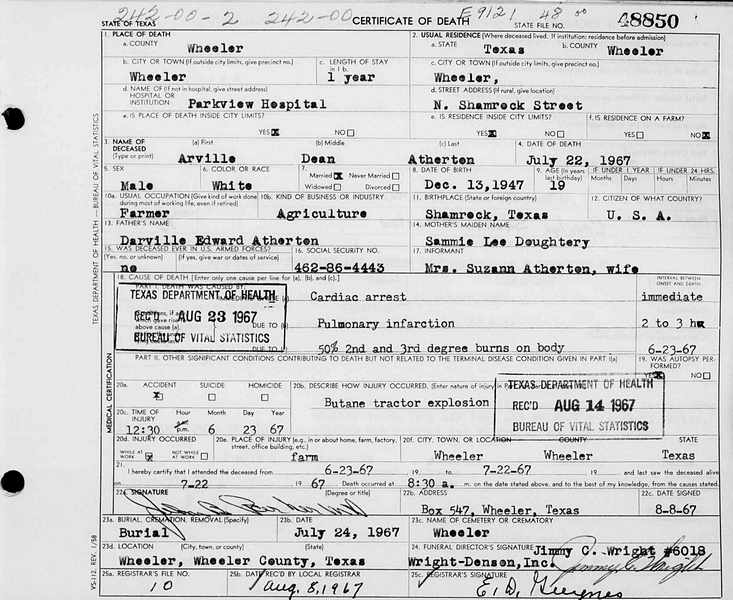 242-00-2 242-00 E 9121 48 00
STATE OF TEXAS CERTIFICATE OF DEATH STATE FILE NO. 48850
1. PLACE OF DEATH 2. USUAL RESIDENCE (Where deceased lived. If institution: residence before admission)
a. COUNTY Wheeler a. STATE Texas b. COUNTY Wheeler
b. CITY OR TOWN (If outside city limits, give precinct no.) c. LENGTH OF STAY in 1 b. c. CITY OR TOWN (If outside city limits, give precinct no.)
Wheeler 1 year Wheeler,
d. NAME OF (If not in hospital, give street address) HOSPITAL OR INSTITUTION d. STREET ADDRESS (If rural, give location)
Parkview Hospital N. Shamrock Street
e. IS PLACE OF DEATH INSIDE CITY LIMITS? e. IS RESIDENCE INSIDE CITY LIMITS? f. IS RESIDENCE ON A FARM?
YES X NO YES X NO YES NO X
3. NAME OF DECEASED (Type or print) (a) First (b) Middle (c) Last 4. DATE OF DEATH
Arville Dean Atherton July 22, 1967
5. SEX 6. COLOR OR RACE 7. Married X Never Married Widowed Divorced 8. DATE OF BIRTH 9. AGE (In years last birthday) IF UNDER 1 YEAR Months Days IF UNDER 24 HRS. Hours Minutes
Male White Dec. 13, 1947 19
10a. USUAL OCCUPATION (Give kind of work done during most of working life, even if retired) 10b. KIND OF BUSINESS OR INDUSTRY 11. BIRTHPLACE (State or foreign country) 12. CITIZEN OF WHAT COUNTRY?
Farmer Agriculture Shamrock, Texas U. S. A.
13. FATHER'S NAME 14. MOTHER'S MAIDEN NAME
Darville Edward Atherton Sammie Lee Doughtery
15. WAS DECEASED EVER IN U.S. ARMED FORCES? (Yes, no, or unknown) (If yes, give war or dates of service) 16. SOCIAL SECURITY NO. 17. INFORMANT
no 462-86-4443 Mrs. Suzann Atherton, wife
18. CAUSE OF DEATH [Enter only one cause per line for (a), (b), and (c).] INTERVAL BETWEEN ONSET AND DEATH
PART I. DEATH WAS CAUSED BY:
Cardiac arrest immediate
DUE TO Pulmonary infarction 2 to 3 hr
DUE TO 50% 2nd and 3rd degree burns on body 6-23-67
TEXAS DEPARTMENT OF HEALTH
REC'D AUG 23 1967
BUREAU OF VITAL STATISTICS
PART II. OTHER SIGNIFICANT CONDITIONS CONTRIBUTING TO DEATH BUT NOT RELATED TO THE TERMINAL DISEASE CONDITION GIVEN IN PART I(a) 19. WAS AUTOPSY PERFORMED?
YES X NO
20a. ACCIDENT X SUICIDE HOMICIDE 20b. DESCRIBE HOW INJURY OCCURRED. (Enter nature of injury in
Butane tractor explosion
TEXAS DEPARTMENT OF HEALTH
REC'D AUG 14 1967
BUREAU OF VITAL STATISTICS
20c. TIME OF INJURY Hour Month Day Year
12:30 p.m. 6 23 67
20d. INJURY OCCURRED WHILE AT WORK X NOT WHILE AT WORK 20e. PLACE OF INJURY (e.g., in or about home, farm, factory, street, office building, etc.) 20f. CITY, TOWN, OR LOCATION COUNTY STATE
farm Wheeler Wheeler Texas
21. I hereby certify that I attended the deceased from 6-23-67 19 to 7-22-67 19 and last saw the deceased alive
on 7-22 19 67 Death occurred at 8:30 a. m. on the date stated above, and to the best of my knowledge, from the causes stated.
22a. SIGNATURE (Degree or title) 22b. ADDRESS 22c. DATE SIGNED
Box 547, Wheeler, Texas 8-8-67
23a. BURIAL, CREMATION, REMOVAL (Specify) 23b. DATE 23c. NAME OF CEMETERY OR CREMATORY
Burial July 24, 1967 Wheeler
23d. LOCATION (City, town, or county) (State) 24. FUNERAL DIRECTOR'S SIGNATURE Jimmy C. Wright #6018
Wheeler, Wheeler County, Texas Wright-Denson, Inc. Jimmy C Wright
25a. REGISTRAR'S FILE NO. 25b. DATE REC'D BY LOCAL REGISTRAR 25c. REGISTRAR'S SIGNATURE
10 Aug. 8, 1967
TEXAS DEPARTMENT OF HEALTH — BUREAU OF VITAL STATISTICS
MEDICAL CERTIFICATION
VS-112 REV. 1/58